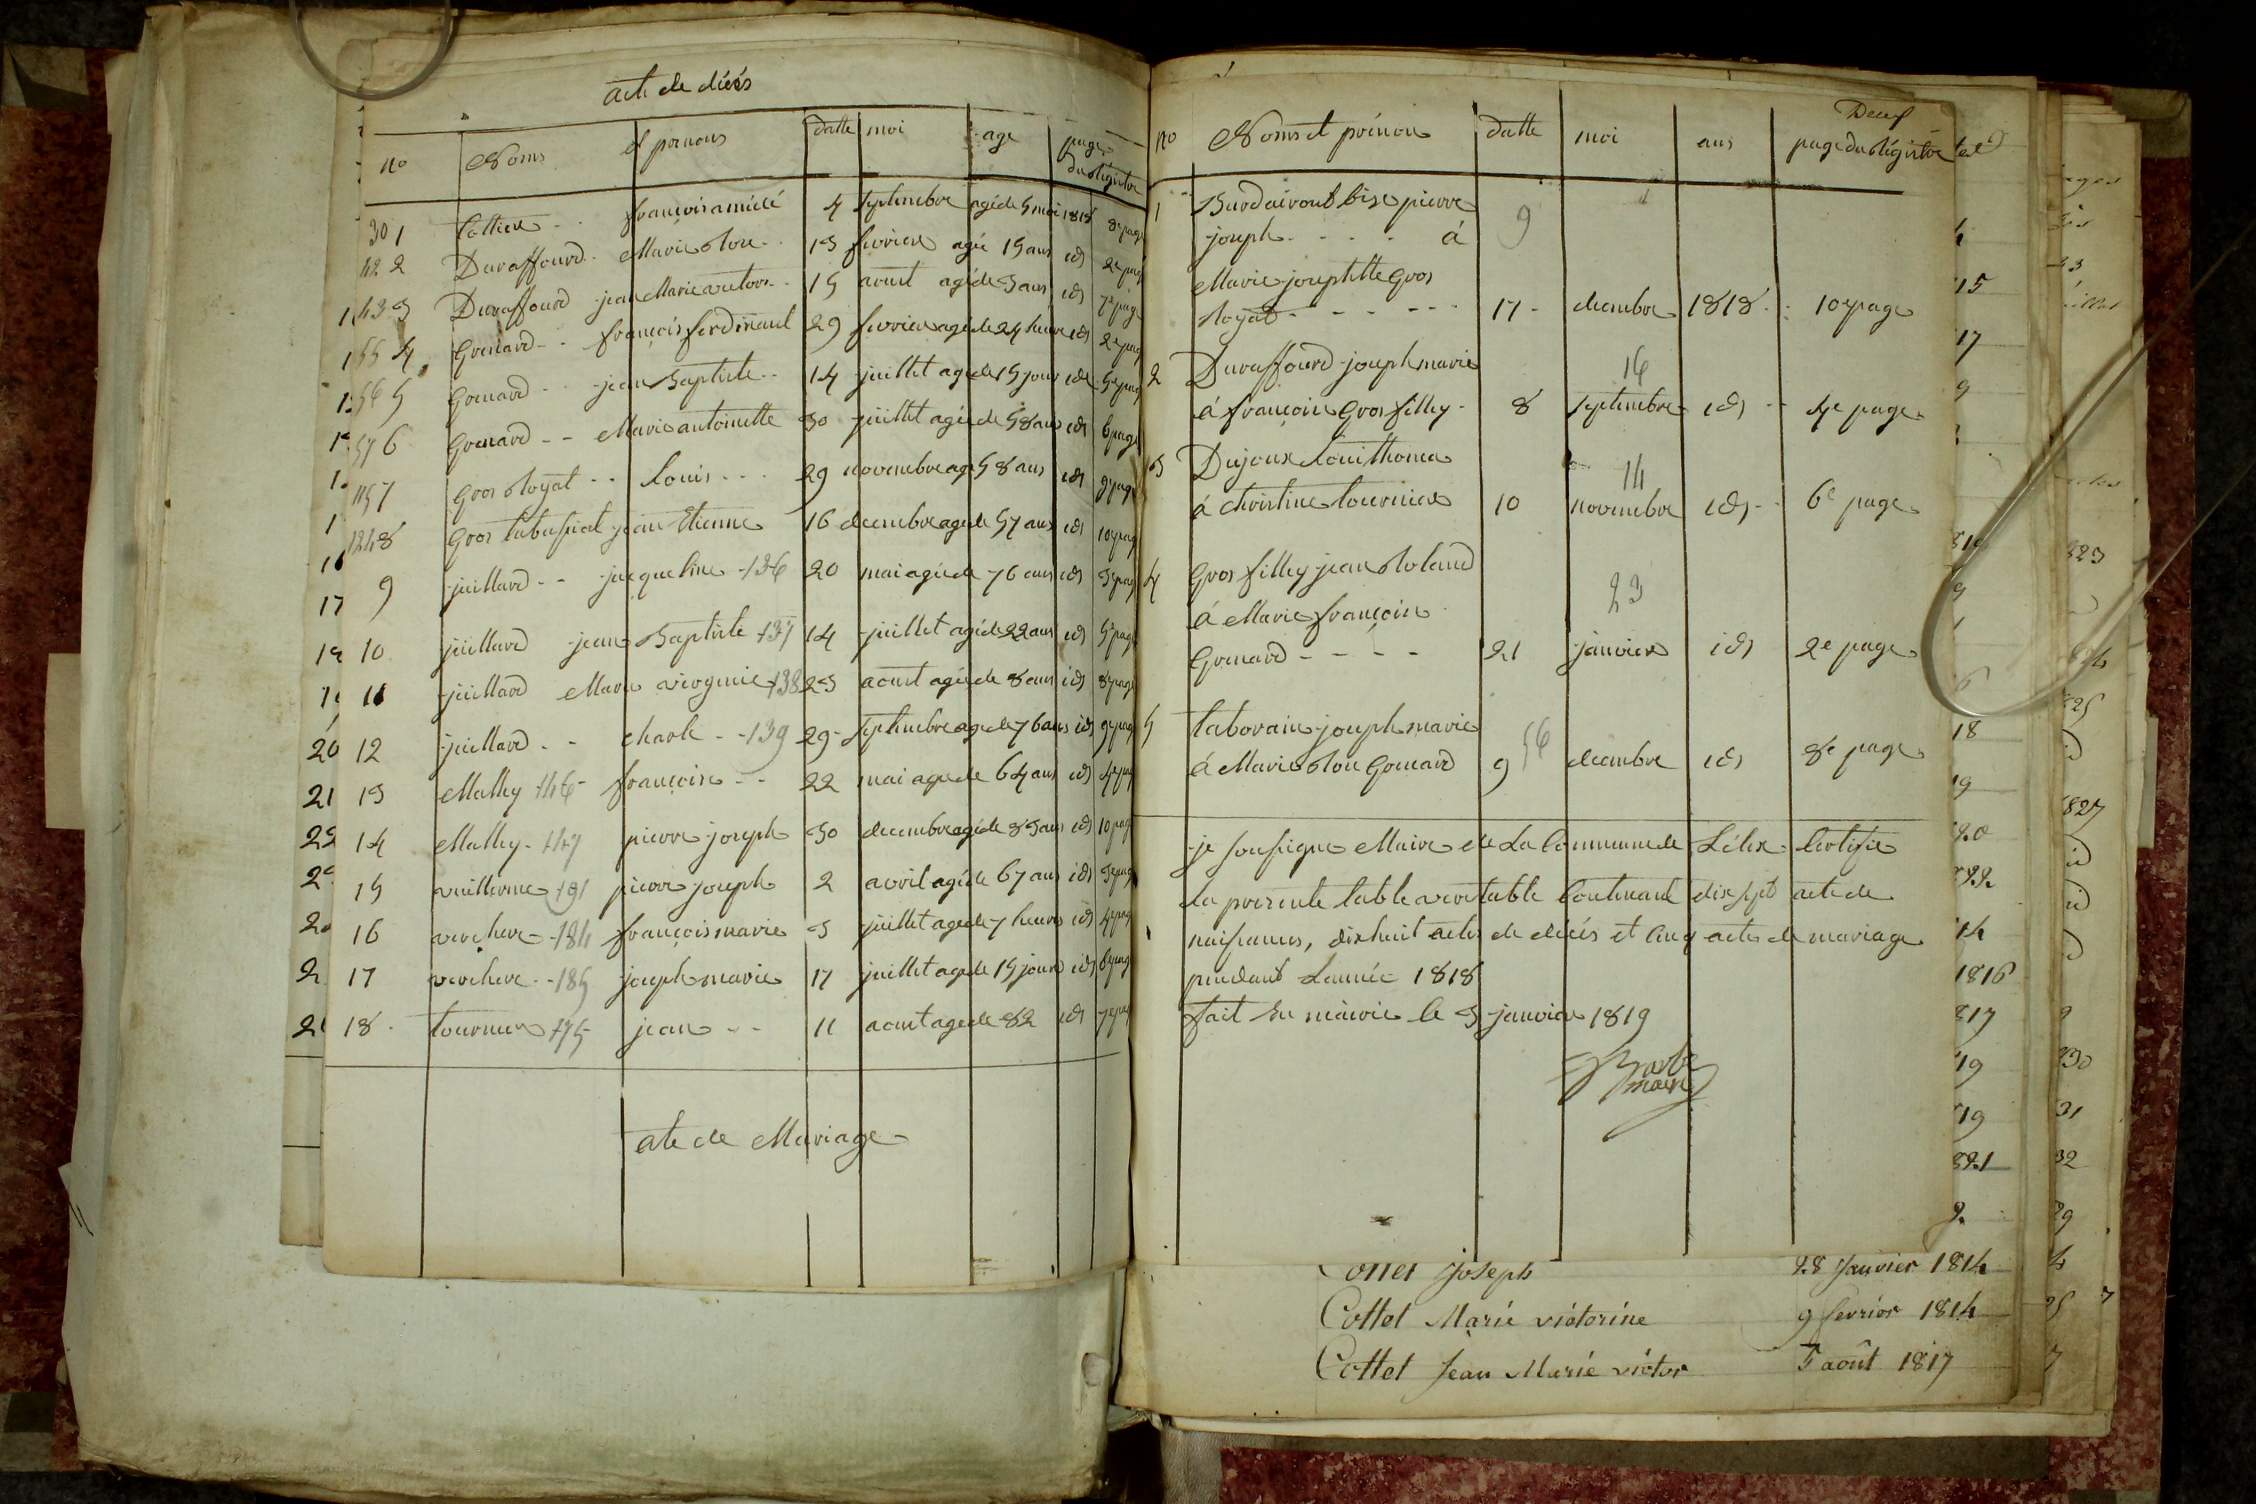 acte de décés
no Noms et prenoms datte moi age page du régistre
30 1 Cottier françois amedé 4 septembre agé de 5 moi 1818 8e page
42 2 Duraffourd Marie Rose 13 fevrier agée 15 ans id 2e page
43 3 Duraffourd jean Marie victor 15 aoust agé de 3 ans id 7e page
55 4 Gonard françois ferdinand 29 fevrier agé de 24 heure id 2e page
56 5 Gonard jean Baptiste 14 juillet agé de 15 jour id 5e page
57 6 Gonard Marie antoinette 30 juillet agée de 58 ans id 6 page
115 7 Gros Royat Louis 29 novembre agé 58 ans id 9e page
124 8 Gros tabussiat jean Etienne 16 decembre agé de 57 ans id 10e page
9 juillard jacqueline 136 20 mai agée de 76 ans id 3e page
10 juillard jean Baptiste 137 14 juillet agé de 22 ans id 5e page
11 juillard Marie virginie 138 23 aoust agée de 8 ans id 8e page
12 juillard charle 139 29 septembre agé de 76 ans id 9e page
13 Malley 146 françoise 22 mai agée de 64 ans id 4e page
14 Malley 147 pierre joseph 30 decembre agé de 83 ans id 10 page
15 vuillerme 181 pierre joseph 2 avril agé de 67 ans id 3e page
16 verchere 184 françois marie 3 juillet agé de 7 heures id 4e page
17 verchere 185 joseph marie 17 juillet agé de 15 jours id 6e page
18 tournier 175 jean 11 aoust agé de 82 id 7e page
acte de Mariage
no Noms et prénom datte moi ans page du régistre
1 Burdairont bise pierre
joseph á 9
Marie josephtte Gros
Royat 17 decembre 1818 10e page
2 Duraffourd joseph marie 16
á françoise Gros filley 8 septembre id 4e page
3 Dujoux Louis thomas 14
á christine tournier 10 novembre id 6e page
4 Gros filley jean Roland 23
á Marie françoise
Gonard 21 janvier id 2e page
5 taborain joseph marie 56
á Marie Rose Gonard 9 decembre id 8e page
je soussigne Maire de La Commune de Lélex Certifie
La presente table veritable Contenant dix sept acte de
naissances, dix huit actes de décés et Cinq actes de mariage
pendant Lannée 1818
fait En mairie le 3 janvier 1819
Barbe
maire
Cottet Joseph 28 Janvier 1814
Cottet Marie victorine 9 fevrier 1814
Cottet Jean Marie victor 5 août 1817